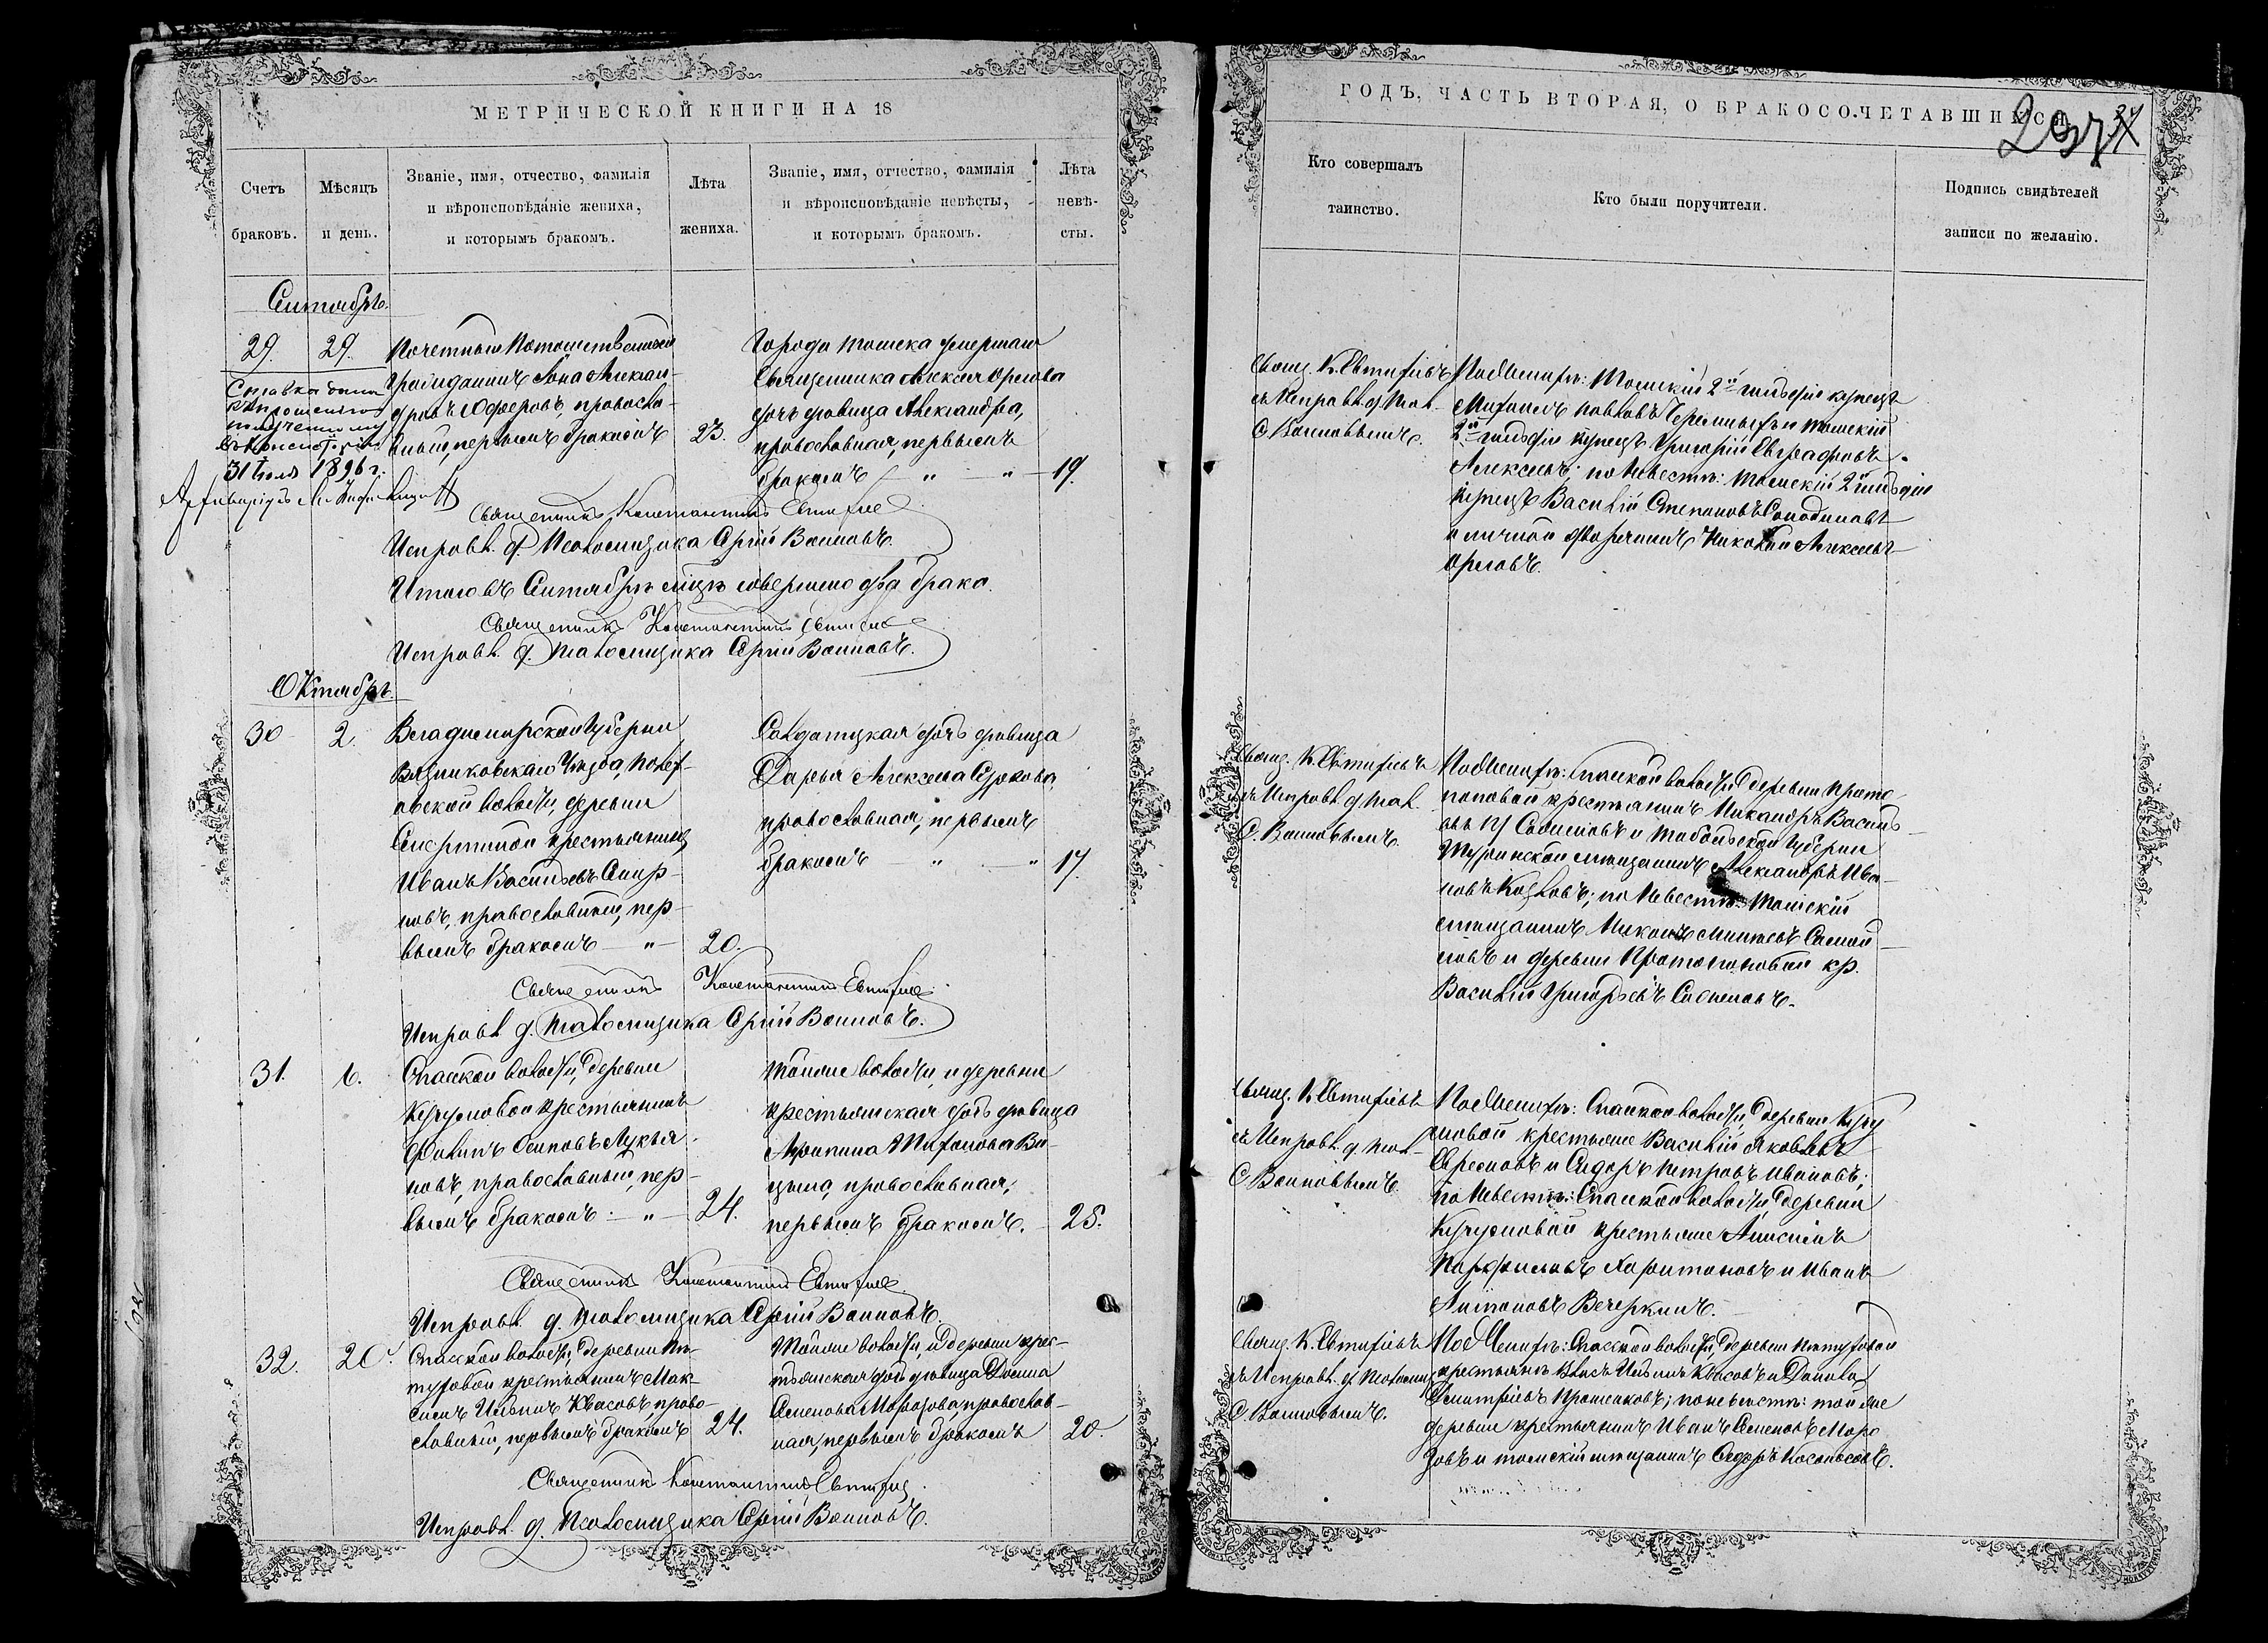 МЕТРИЧЕСКОЙ КНИГИ НА 18
Счетъ
браковъ.
Мѣсяцъ
и день.
Званіе, имя, отчество, фамилія
и вѣроисповѣданіе жениха,
и которымъ бракомъ.
Лѣта
жениха.
Званіе, имя, отчество, фамилія
и вѣроисповѣданіе невѣсты,
и которымъ бракомъ.
Лѣта
невѣ-
сты.
Сентябрь.
29. 29.
Почетный Потомственный
Гражданинъ Іона Алексан-
дровъ Юферовъ, правосла-
вный, первымъ бракомъ 23.
Справка дана
31 Іюля 1896 г.
Города Томска умершаго
Священника Алексея Орлова
дочь дѣвица Александра,
православная, первымъ
бракомъ — " — " — 19.
Священникъ Константинъ Евтифіевъ
Исправл. д. Псаломщика Сергій Воиновъ.
Итого въ Сентябрѣ мѣсяцѣ совершено два брака.
Священникъ Константинъ Евтифіевъ
Исправл. д. Псаломщика Сергій Воиновъ.
Октябрь.
30 2.
Владимирской Губерніи
Вязниковскаго Уѣзда,
волости, деревни
крестьянинъ
Иванъ Васильевъ Смир-
новъ, православный, пер-
вымъ бракомъ — " — 20.
Солдатская дочь дѣвица
Дарья Алексѣева
православная, первымъ
бракомъ — " — " 17.
Священникъ Константинъ Евтифіевъ
Исправл. д. Псаломщика Сергій Воиновъ.
31. 6.
Спасской волости, деревни
крестьянинъ
Филипъ Осиповъ Лукья-
новъ, православный, пер-
вымъ бракомъ — " — 24.
Той же волости и деревни
крестьянская дочь дѣвица
Агрипина
православная,
первымъ бракомъ. 25.
Священникъ Константинъ Евтифіевъ
Исправл. д. Псаломщика Сергій Воиновъ.
32. 20.
Спасской волости, деревни Пѣ-
туховой крестьянинъ Мак-
симъ Ильинъ Квасовъ право-
славный, первымъ бракомъ 24.
Той же волости, и деревни крес-
тьянская дочь дѣвица Домна
Семенова Морозова православ-
ная, первымъ бракомъ 20.
Священникъ Константинъ Евтифіевъ
Исправл. д. Псаломщика Сергій Воиновъ.
ГОДЪ, ЧАСТЬ ВТОРАЯ, О БРАКОСОЧЕТАВШИХСЯ.
Кто совершалъ
таинство.
Кто были поручители.
Подпись свидѣтелей
записи по желанію.
Свящ. К. Евтифіевъ
съ Исправл. д. Псал.
С. Воиновымъ.
По Женихѣ: Томскій 2й гильдіи купецъ
Михаилъ Павловъ и томскій
2й гильдіи купецъ Григорій Евграфовъ
Алексѣевъ; по Невѣстѣ: Томскій 2й гильдіи
купецъ Василій Степановъ
и личной дворянинъ Николай Алексѣевъ
Орловъ.
Свящ. К. Евтифіевъ
съ Исправл. д. Псал.
С. Воиновымъ.
По Женихѣ: Спасской волости, деревни Прото-
поповой крестьянинъ Никандръ Василь-
евъ и Тобольской Губерніи
Туринской мѣщанинъ Александръ Ива-
новъ Козловъ; по Невѣстѣ: Томскій
мѣщанинъ
и деревни Протопоповой кр.
Василій Григорьевъ
Свящ. К. Евтифіевъ
съ Исправл. д. Псал.
С. Воиновымъ
По Женихѣ: Спасской волости, деревни
крестьяне Василій Яковлевъ
Ефремовъ и Сидоръ Петровъ Ивановъ;
по Невѣстѣ: Спасской волости, деревни
крестьяне Анисимъ
Харитоновъ и Иванъ
Антоновъ Вечеркинъ.
Свящ. К. Евтифіевъ
съ Исправл. д. Псаломщ.
С. Воиновымъ.
По Женихѣ: Спасской волости, деревни Пѣтуховой
крестьяне Власъ Ильинъ Квасовъ и Данила
Дмитріевъ; по невѣстѣ: той же
деревни крестьянинъ Иванъ Семеновъ Моро-
зовъ и томскій мѣщанинъ Сидоръ Косоносовъ.